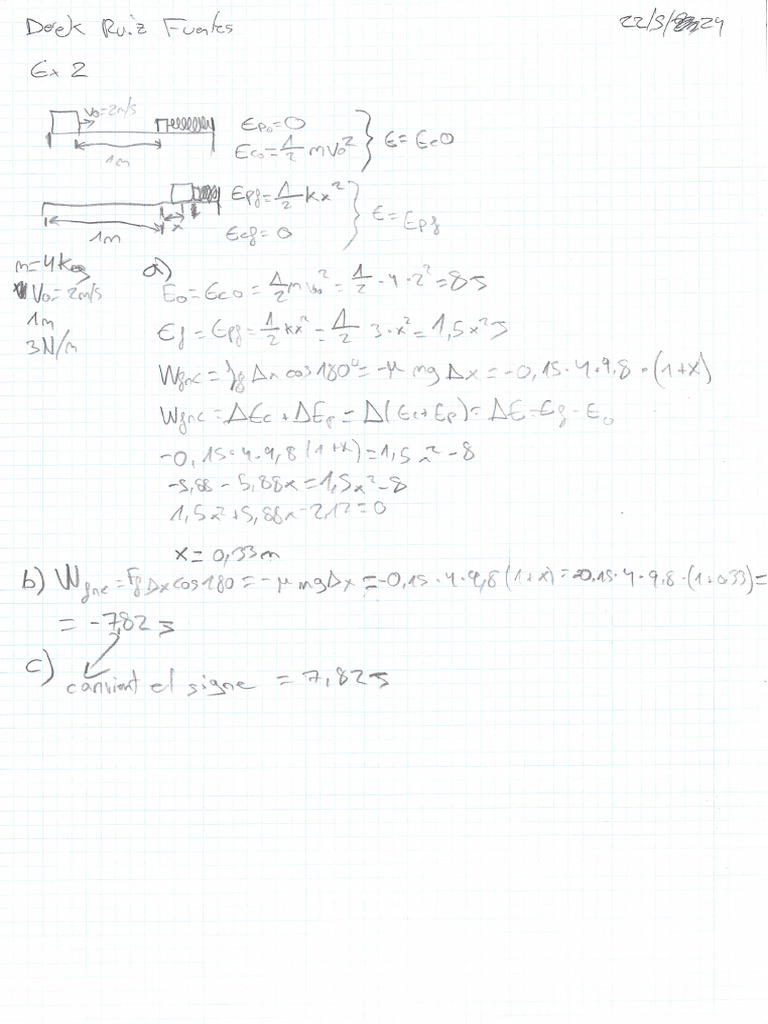 Derek Ruiz Fuentes 22/5/24
Ex 2
v0=2m/s
1m
Ep0=0
Ec0=1/2 mv0²
E=Ec0
1m
x
Epf=1/2 kx²
Ecf=0
E=Epf
m=4Kg
V0=2m/s
1m
3N/m
a)
E0=Ec0=1/2 mv0²=1/2·4·2²=8J
Ef=Epf=1/2 kx²=1/2 3·x²=1,5x²J
Wfnc=Ff Δx cos180º=-μ mg Δx=-0,15·4·9,8·(1+x)
Wfnc=ΔEc+ΔEp=Δ(Ec+Ep)=ΔE=Ef-E0
-0,15·4·9,8(1+x)=1,5x²-8
-5,88-5,88x=1,5x²-8
1,5x²+5,88x-2,12=0
x=0,33m
b) Wfnc=Ff Δx cos180=-μ mgΔx=-0,15·4·9,8(1+x)=-0,15·4·9,8·(1+0,33)=
=-7,82J
c) canviant el signe =7,82J